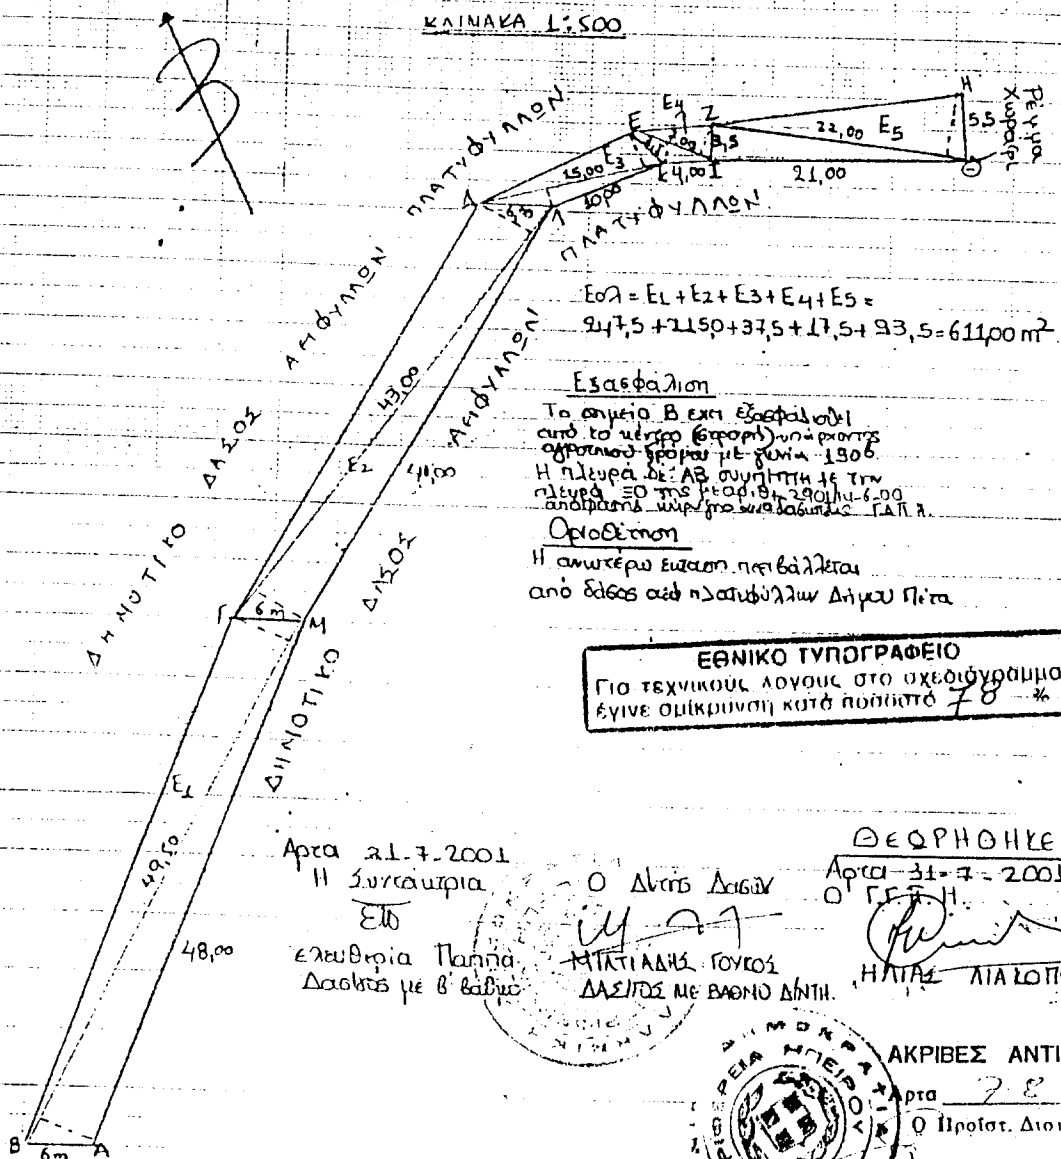 ΚΛΙΜΑΚΑ 1:500
B
ΠΛΑΤΥΦΥΛΛΩΝ
ΑΕΙΦΥΛΛΩΝ
ΔΑΣΟΣ
ΔΗΜΟΤΙΚΟ
ΠΛΑΤΥΦΥΛΛΩΝ
ΑΕΙΦΥΛΛΩΝ
ΔΑΣΟΣ
ΔΗΜΟΤΙΚΟ
Ρέγμα
Χωράφι
E E4 Z H
E3 3,5 22,00 E5 5,5
Δ 15,00 K 4,00 I 21,00 Θ
Λ 10,00
43,00
E2 41,00
Γ 6 m M
E1
49,50
48,00
B 6m A
Εολ = E1 + E2 + E3 + E4 + E5 =
247,5 + 215,0 + 37,5 + 17,5 + 93,5 = 611,00 m²
Εξασφάλιση
Το σημείο Β έχει εξασφαλισθεί
από το κέντρο (στροφή) υπάρχοντος
αγροτικού δρόμου με γωνία 190б
Η πλευρά δε ΑΒ συμπίπτει με την
πλευρά ΞΟ της
Οριοθέτηση
Η ανωτέρω έκταση περιβάλλεται
από δάσος αειφ πλατυφύλλων Δήμου Πέτα
ΕΘΝΙΚΟ ΤΥΠΟΓΡΑΦΕΙΟ
Για τεχνικούς λόγους στο σχεδιάγραμμα
έγινε σμίκρυνση κατά ποσοστό 78 %
Αρτα 21-7-2001
Η Συντάκτρια
Ελευθερία Παππά
Δασ/γος με β' βαθμό
Ο Δ/ντης Δασών
ΜΙΛΤΙΑΔΗΣ ΓΟΥΣΟΣ
ΔΑΣ/ΓΟΣ ΜΕ ΒΑΘΜΟ Δ/ΝΤΗ.
ΘΕΩΡΗΘΗΚΕ
Αρτα 31-7-2001
Ο Γ.Γ.Π.Η.
ΗΛΙΑΣ ΛΙΑΚΟΠ
ΑΚΡΙΒΕΣ ΑΝΤΙ
Άρτα
Ο Προϊστ. Διοι